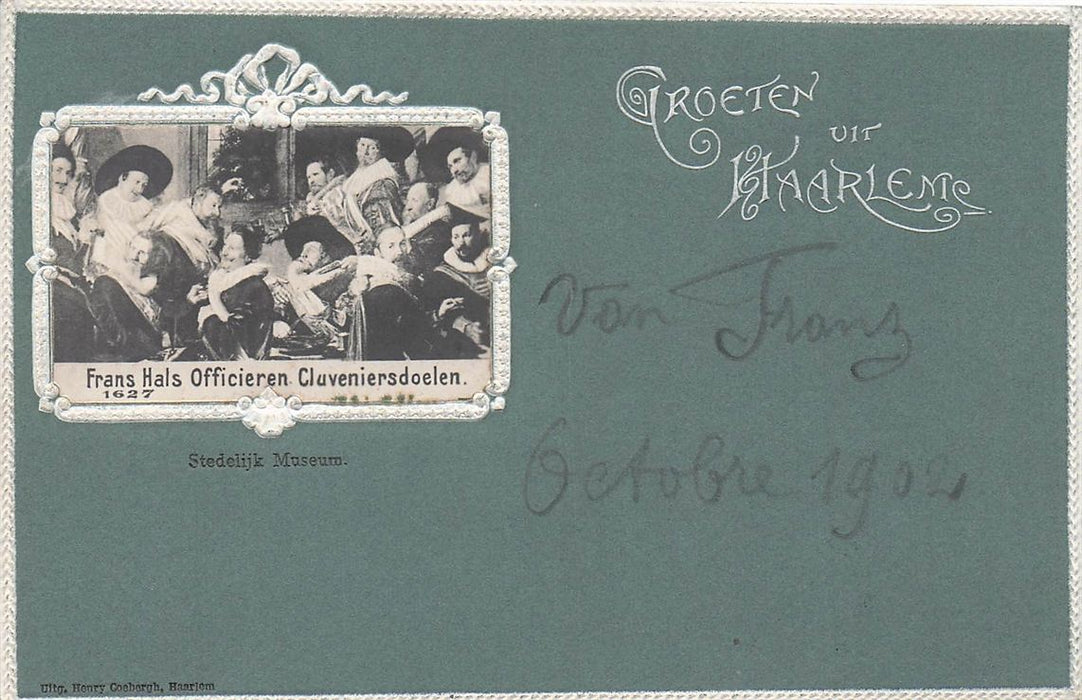 GROETEN
UIT
HAARLEM
Frans Hals Officieren Cluveniersdoelen.
1627
Stedelijk Museum.
Von Franz
Octobre 1902
Uitg. Henry Coebergh, Haarlem